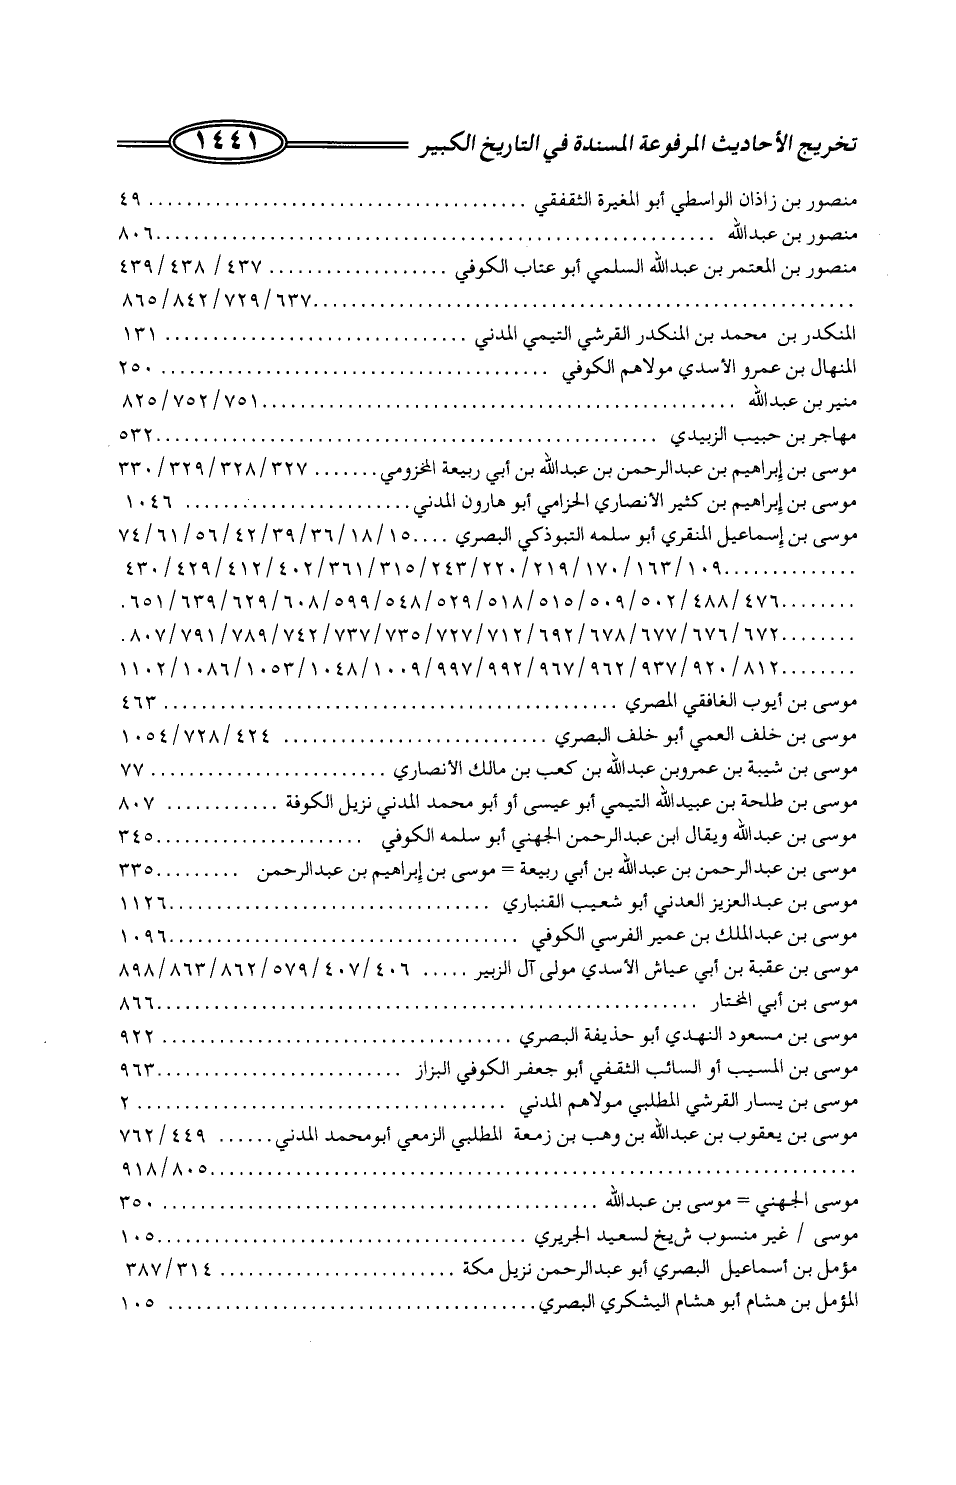 تخريج الأحاديث المرفوعة المسندة في التاريخ الكبير ١٤٤١
منصور بن زاذان الواسطي أبو المغيرة الثقفقي ........ ٤٩
منصور بن عبدالله ........ ٨٠٦
منصور بن المعتمر بن عبدالله السلمي أبو عتاب الكوفي ........ ٤٣٧/ ٤٣٨/ ٤٣٩
........ ٦٣٧/ ٧٢٩/ ٨٤٢/ ٨٦٥
المنكدر بن محمد بن المنكدر القرشي التيمي المدني ........ ١٣١
المنهال بن عمرو الأسدي مولاهم الكوفي ........ ٢٥٠
منير بن عبدالله ........ ٧٥١/ ٧٥٢/ ٨٢٥
مهاجر بن حبيب الزبيدي ........ ٥٣٢
موسى بن إبراهيم بن عبدالرحمن بن عبدالله بن أبي ربيعة المخزومي ....... ٣٢٧/ ٣٢٨/ ٣٢٩/ ٣٣٠
موسى بن إبراهيم بن كثير الانصاري الحزامي أبو هارون المدني ........ ١٠٤٦
موسى بن إسماعيل المنقري أبو سلمه التبوذكي البصري .... ١٥/ ١٨/ ٣٦/ ٣٩/ ٤٢/ ٥٦/ ٦١/ ٧٤
........ ١٠٩/ ١٦٣/ ١٧٠/ ٢١٩/ ٢٢٠/ ٢٤٣/ ٣١٥/ ٣٦١/ ٤٠٢/ ٤١٢/ ٤٢٩/ ٤٣٠
........ ٤٧٦/ ٤٨٨/ ٥٠٢/ ٥٠٩/ ٥١٥/ ٥١٨/ ٥٢٩/ ٥٤٨/ ٥٩٩/ ٦٠٨/ ٦٢٩/ ٦٣٩/ ٦٥١.
........ ٦٧٢/ ٦٧٦/ ٦٧٧/ ٦٧٨/ ٦٩٢/ ٧١٢/ ٧٢٧/ ٧٣٥/ ٧٣٧/ ٧٤٢/ ٧٨٩/ ٧٩١/ ٨٠٧.
........ ٨١٢/ ٩٢٠/ ٩٣٧/ ٩٦٢/ ٩٦٧/ ٩٩٢/ ٩٩٧/ ١٠٠٩/ ١٠٤٨/ ١٠٥٣/ ١٠٨٦/ ١١٠٢
موسى بن أيوب الغافقي المصري ........ ٤٦٣
موسى بن خلف العمي أبو خلف البصري ........ ٤٢٤/ ٧٢٨/ ١٠٥٤
موسى بن شيبة بن عمروبن عبدالله بن كعب بن مالك الانصاري ........ ٧٧
موسى بن طلحة بن عبيدالله التيمي أبو عيسى أو أبو محمد المدني نزيل الكوفة ........ ٨٠٧
موسى بن عبدالله ويقال ابن عبدالرحمن الجهني أبو سلمه الكوفي ........ ٣٤٥
موسى بن عبدالرحمن بن عبدالله بن أبي ربيعة = موسى بن إبراهيم بن عبدالرحمن ........ ٣٣٥
موسى بن عبدالعزيز العدني أبو شعيب القنباري ........ ١١٢٦
موسى بن عبدالملك بن عمير الفرسي الكوفي ........ ١٠٩٦
موسى بن عقبة بن أبي عياش الأسدي مولى آل الزبير ..... ٤٠٦/ ٤٠٧/ ٥٧٩/ ٨٦٢/ ٨٦٣/ ٨٩٨
موسى بن أبي المختار ........ ٨٦٦
موسى بن مسعود النهدي أبو حذيفة البصري ........ ٩٢٢
موسى بن المسيب أو السائب الثقفي أبو جعفر الكوفي البزاز ........ ٩٦٣
موسى بن يسار القرشي المطلبي مولاهم المدني ........ ٢
موسى بن يعقوب بن عبدالله بن وهب بن زمعة المطلبي الزمعي أبومحمد المدني ........ ٤٤٩/ ٧٦٢
........ ٨٠٥/ ٩١٨
موسى الجهني = موسى بن عبدالله ........ ٣٥٠
موسى / غير منسوب شيخ لسعيد الجريري ........ ١٠٥
مؤمل بن أسماعيل البصري أبو عبدالرحمن نزيل مكة ........ ٣١٤/ ٣٨٧
المؤمل بن هشام أبو هشام اليشكري البصري ........ ١٠٥